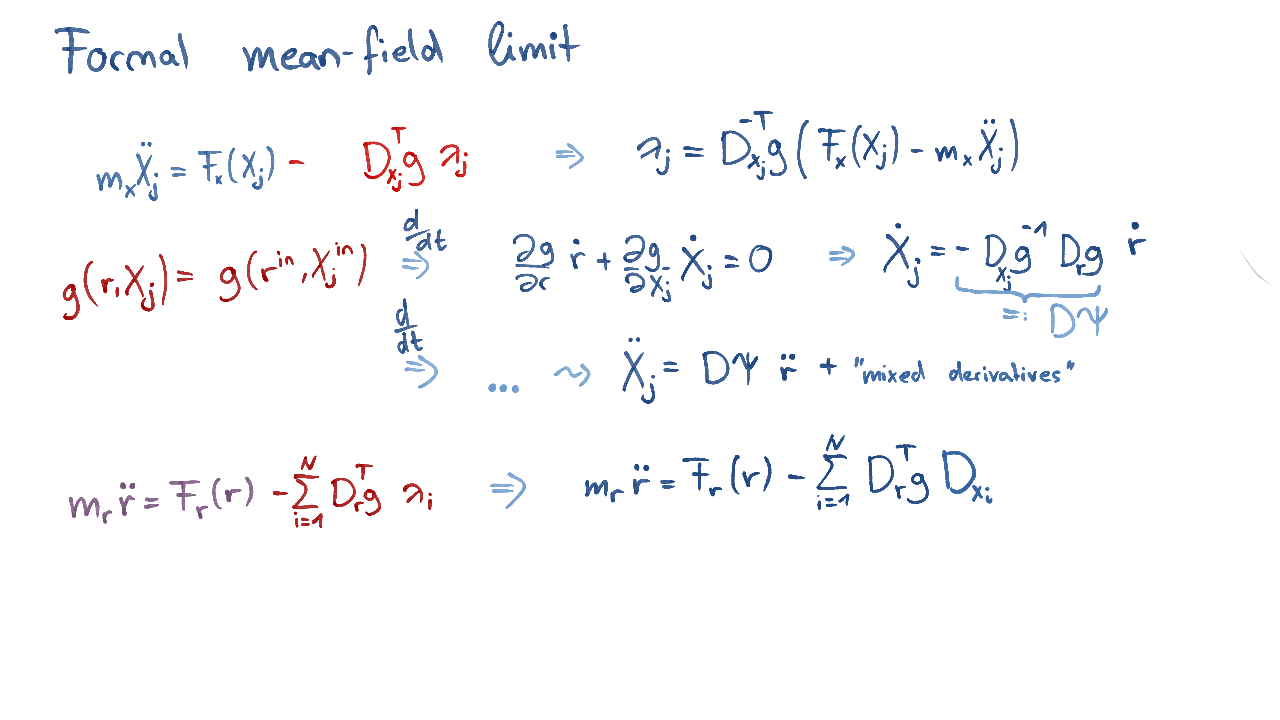 Formal mean-field limit
m_x Ẍ_j = F_x(X_j) - D_{x_j}^T g λ_j ⇒ λ_j = D_{x_j}^{-T} g ( F_x(X_j) - m_x Ẍ_j )
g(r, X_j) = g(r^{in}, X_j^{in}) d/dt ⇒ ∂g/∂r ṙ + ∂g/∂X_j Ẋ_j = 0 ⇒ Ẋ_j = - D_{x_j} g^{-1} D_r g ṙ
=: DΨ
d/dt ⇒ ... ⇝ Ẍ_j = DΨ r̈ + "mixed derivatives"
m_r r̈ = F_r(r) - ∑_{i=1}^N D_r^T g λ_i ⇒ m_r r̈ = F_r(r) - ∑_{i=1}^N D_r^T g D_{x_i}